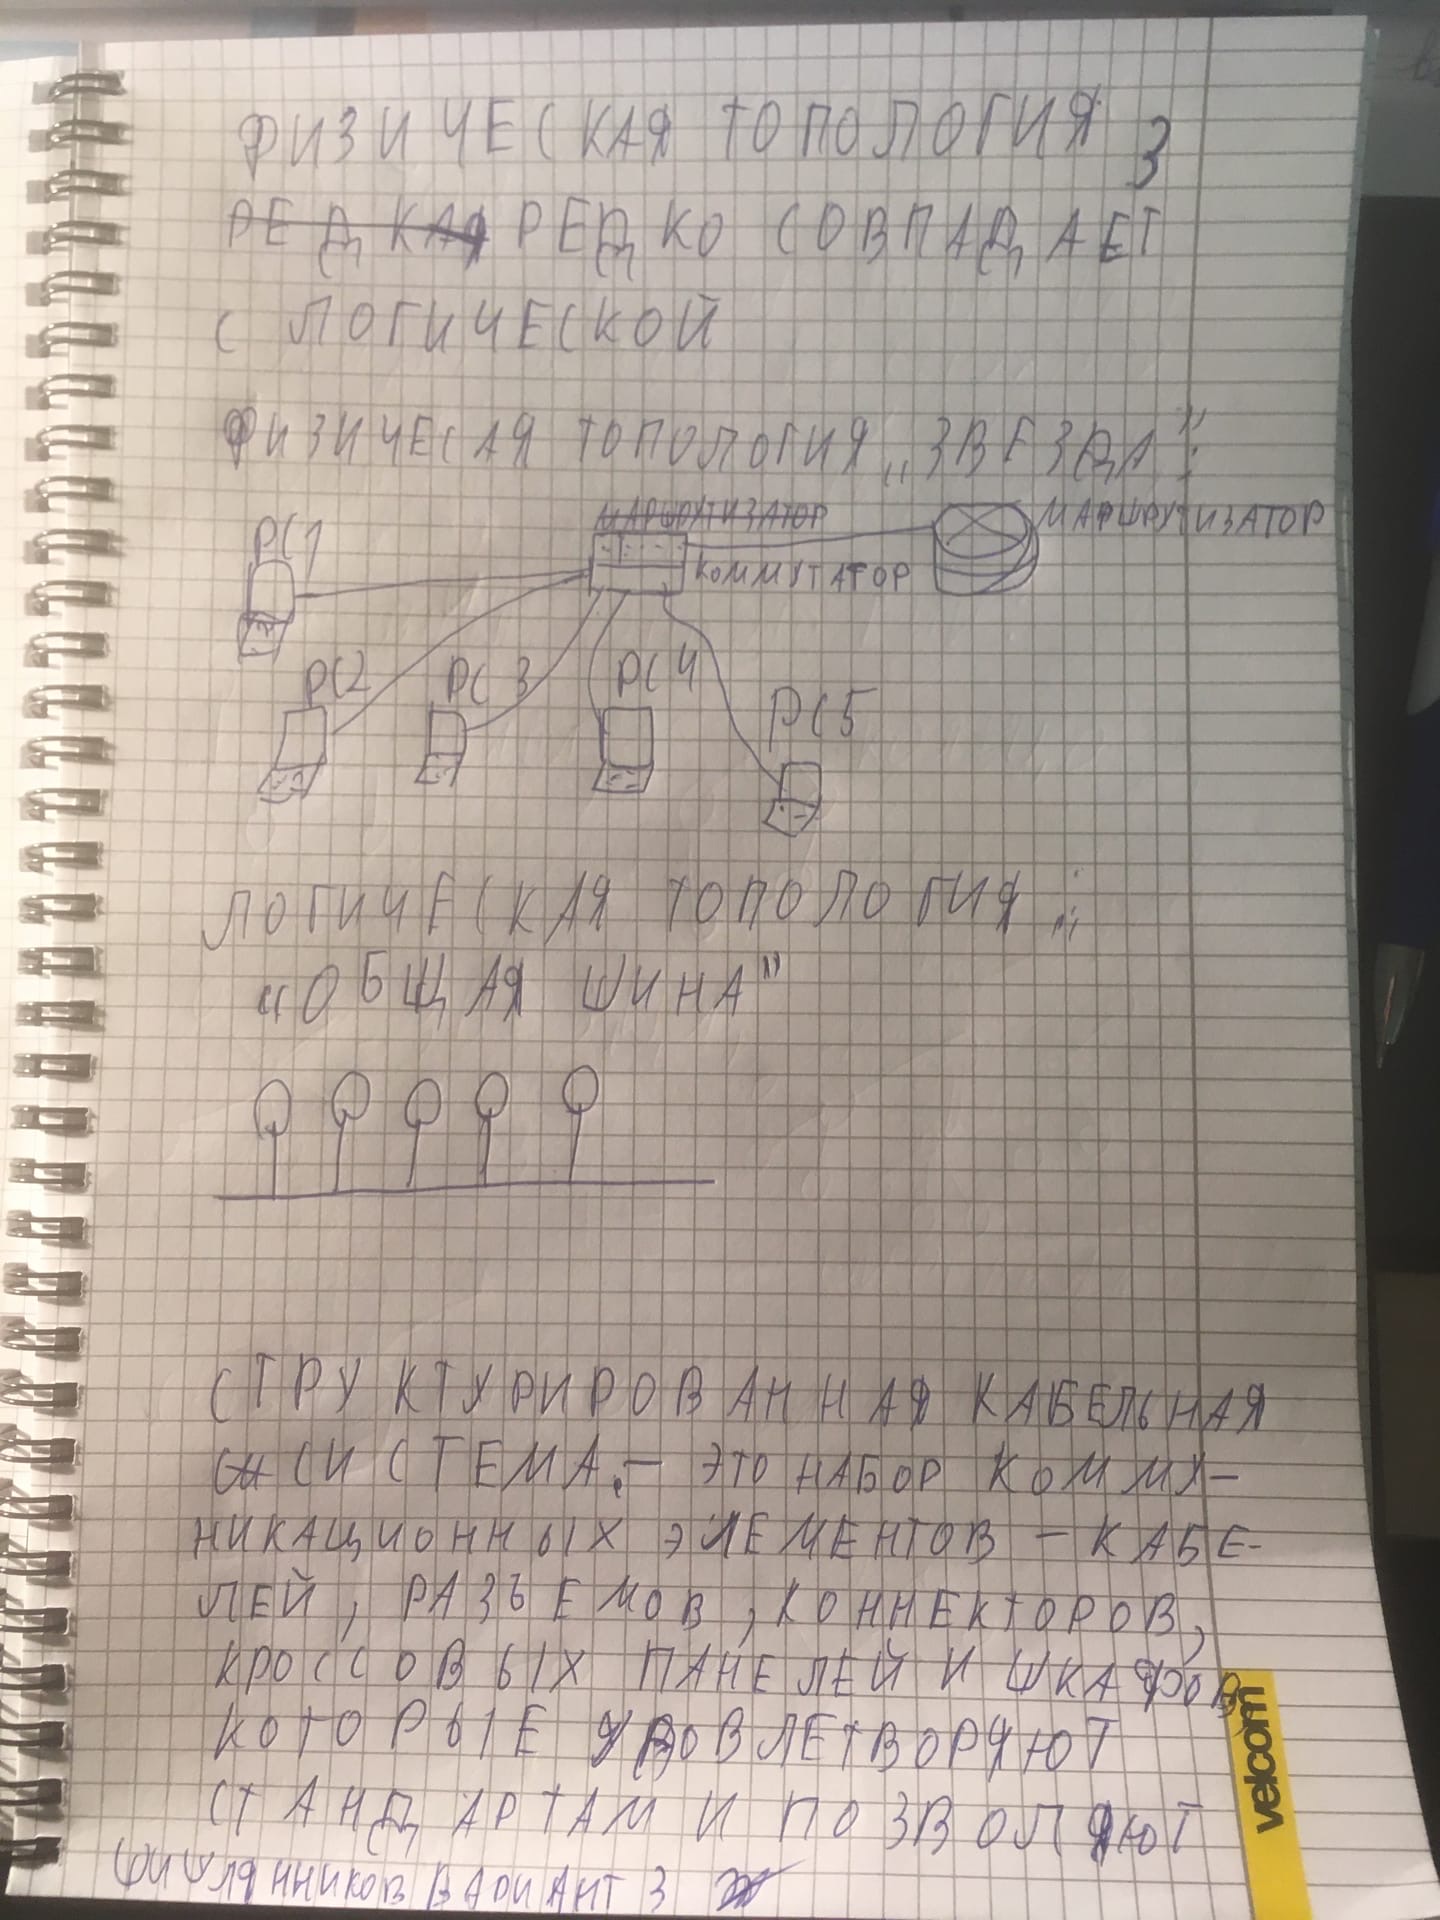 ФИЗИЧЕСКАЯ ТОПОЛОГИЯ 3
РЕДКАЯ РЕДКО СОВПАДАЕТ
С ЛОГИЧЕСКОЙ
ФИЗИЧЕСАЯ ТОПОЛОГИЯ „ЗВЕЗДА":
МАРШРУТИЗАТОР
МАРШРУТИЗАТОР
PC1
КОММУТАТОР
PC2 PC3 PC4
PC5
ЛОГИЧЕСКАЯ ТОПОЛОГИЯ :
"ОБЩАЯ ШИНА"
СТРУКТУРИРОВАННАЯ КАБЕЛЬНАЯ
СИСТЕМА. – ЭТО НАБОР КОММУ-
НИКАЦИОННЫХ ЭЛЕМЕНТОВ – КАБЕ-
ЛЕЙ, РАЗЪЕМОВ, КОННЕКТОРОВ,
КРОССОВЫХ ПАНЕЛЕЙ И ШКАФОВ
КОТОРЫЕ УДОВЛЕТВОРЯЮТ
СТАНДАРТАМ И ПОЗВОЛЯЮТ
ВАРИАНТ 3
velcom